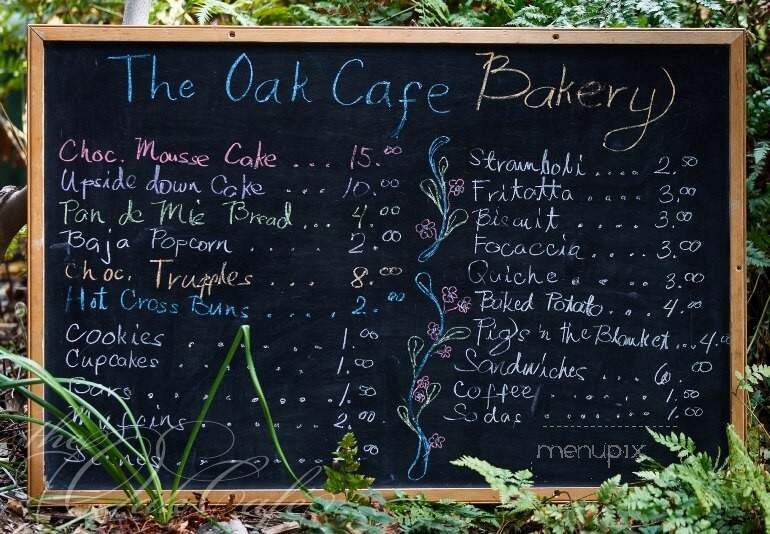 The Oak Cafe Bakery
Choc. Mousse Cake ... 15.00
Upside down Cake ... 10.00
Pan de Mie Bread ... 4.00
Baja Popcorn .... 2.00
Choc. Trupples ... 8.00
Hot Cross Buns .... 2.00
Cookies ...... 1.00
Cupcakes ...... 1.00
Bars ...... 1.50
Muffins ...... 2.00
Stramboli .... 2.50
Fritatta .... 3.00
Biscuit .... 3.00
Focaccia .... 3.00
Quiche .... 3.00
Baked Potato ... 4.00
Pigs 'n the Blanket ... 4.00
Sandwiches .... 6.00
Coffee ..... 1.00
Sodas ..... 1.00
menupix
the